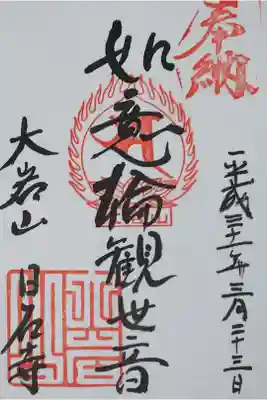 奉納
平成三十一年三月二十三日
如意輪観世音
大岩山 日石寺